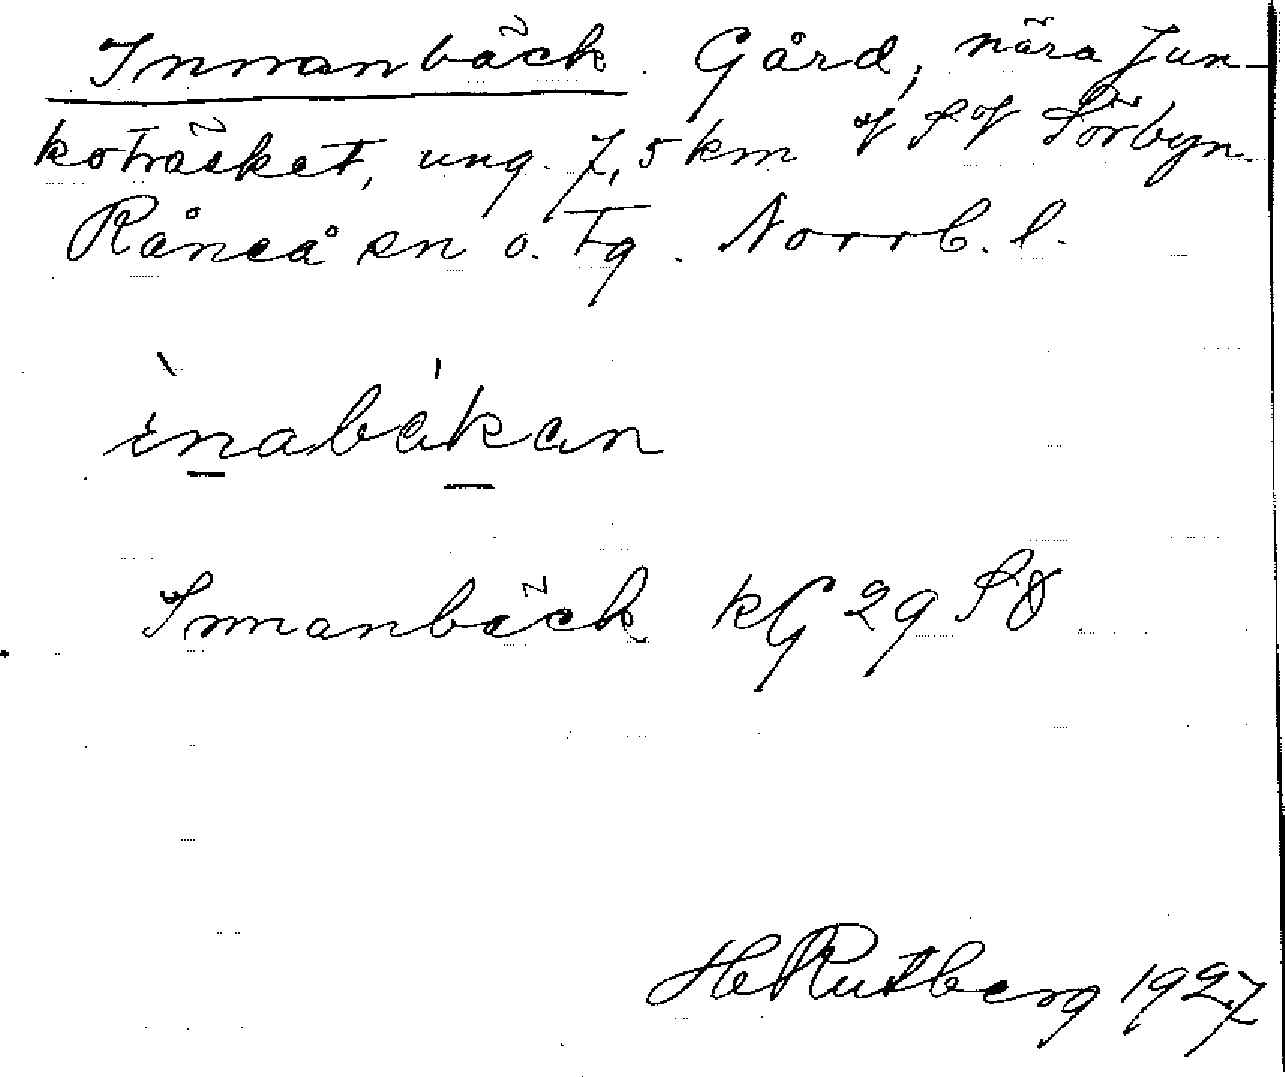 Innanbäck. Gård, nära Jun-
koträsket, ung. 7,5 km VSV Sörbyn
Råneå sn o. tg. Norrb. l.
ìnabákan
Innanbäck kG 29 SO
HRutberg 1927